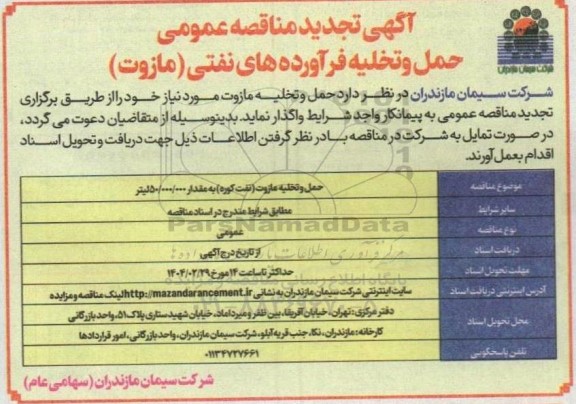 آگهی تجدید مناقصه عمومی
حمل و تخلیه فرآورده های نفتی (مازوت)
شرکت سیمان مازندران
شرکت سیمان مازندران در نظر دارد حمل و تخلیه مازوت مورد نیاز خود را از طریق برگزاری
تجدید مناقصه عمومی به پیمانکار واجد شرایط واگذار نماید. بدینوسیله از متقاضیان دعوت می گردد،
در صورت تمایل به شرکت در مناقصه با در نظر گرفتن اطلاعات ذیل جهت دریافت و تحویل اسناد
اقدام بعمل آورند.
موضوع مناقصه حمل و تخلیه مازوت (نفت کوره) به مقدار ۵۰/۰۰۰/۰۰۰ لیتر
سایر شرایط مطابق شرایط مندرج در اسناد مناقصه
نوع مناقصه عمومی
دریافت اسناد از تاریخ درج آگهی
مهلت تحویل اسناد حداکثر تا ساعت ۱۴ مورخ ۱۴۰۴/۰۲/۲۹
آدرس اینترنتی دریافت اسناد سایت اینترنتی شرکت سیمان مازندران به نشانی http://mazandarancement.ir لینک مناقصه و مزایده
محل تحویل اسناد دفتر مرکزی: تهران، خیابان آفریقا، بین ظفر و میرداماد، خیابان شهید ستاری پلاک ۵۱، واحد بازرگانی
کارخانه: مازندران، نکا، جنب قریه آبلو، شرکت سیمان مازندران، واحد بازرگانی، امور قراردادها
تلفن پاسخگویی ۰۱۱۳۴۷۲۷۶۶۱
شرکت سیمان مازندران (سهامی عام)
ParsNamadData